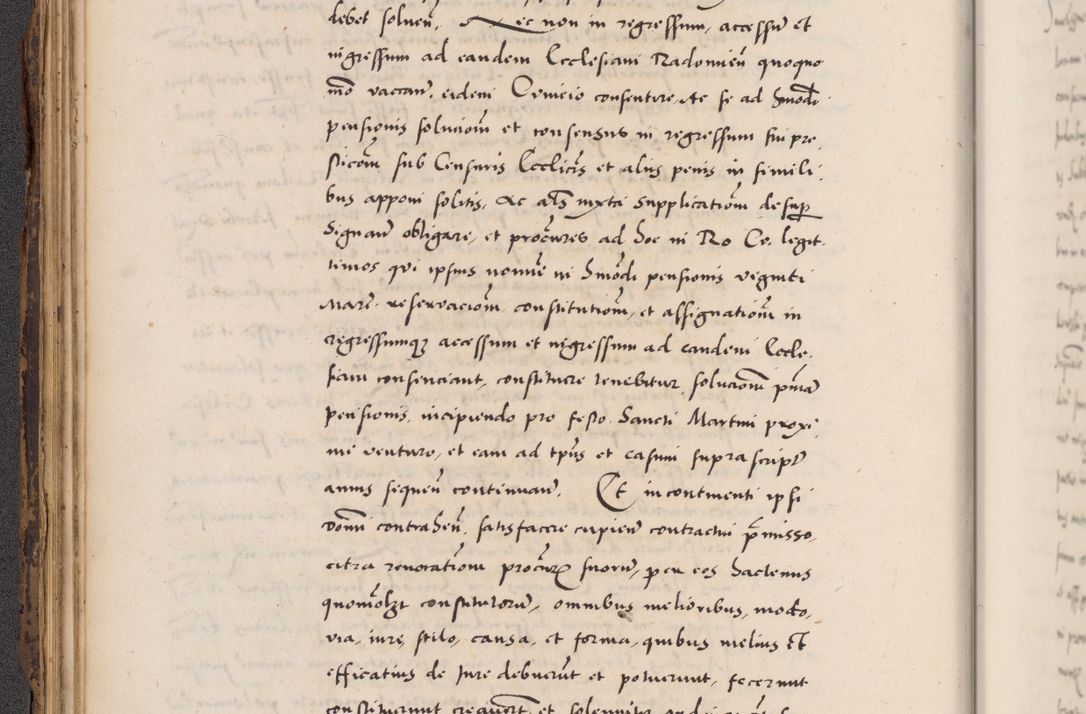 debet solueñ. Nec non in regressum, accessum et
ingressum ad eandem Ecclesiam Radomieñ quoquo
mō vacanˀ, eidem consentire Ac se ad hmōdi
pensionis solucioñ et consensus in regressum sui pre
sub Censuris Ecclicis et aliis penis in simili
bus apponi solitis, Ac als iuxta supplicationi desup
signanˀ obligare, et procures ad hoc in Ro Co. legit
timos qui ipsius nomine in hmōdi pensionis viginti
Marc. reservacioni, constitutioni, et assignationi in
regressumque accessum et ingressum ad eandem Eccle
siam consenciant, constituere tenebitur, solucioni primā
pensionis, incipiendo pro festo Sancti Martini proxi
me venturo, et eam ad tpus et casum supra script
annis sequeñ continuanˀ. Et in continenti ipsi
domi contraheñ, satisfacere cupieñ contractui pmisso,
citra revocationi procur suorum, per eos hactenus
quomōlzt constitutorum, omnibus melioribus, modo,
via, iure, stilo, causa, et forma, quibus melius et
efficatius de Iure debuerunt et potuerunt, fecerunt
constituerunt creaverunt et solenniter